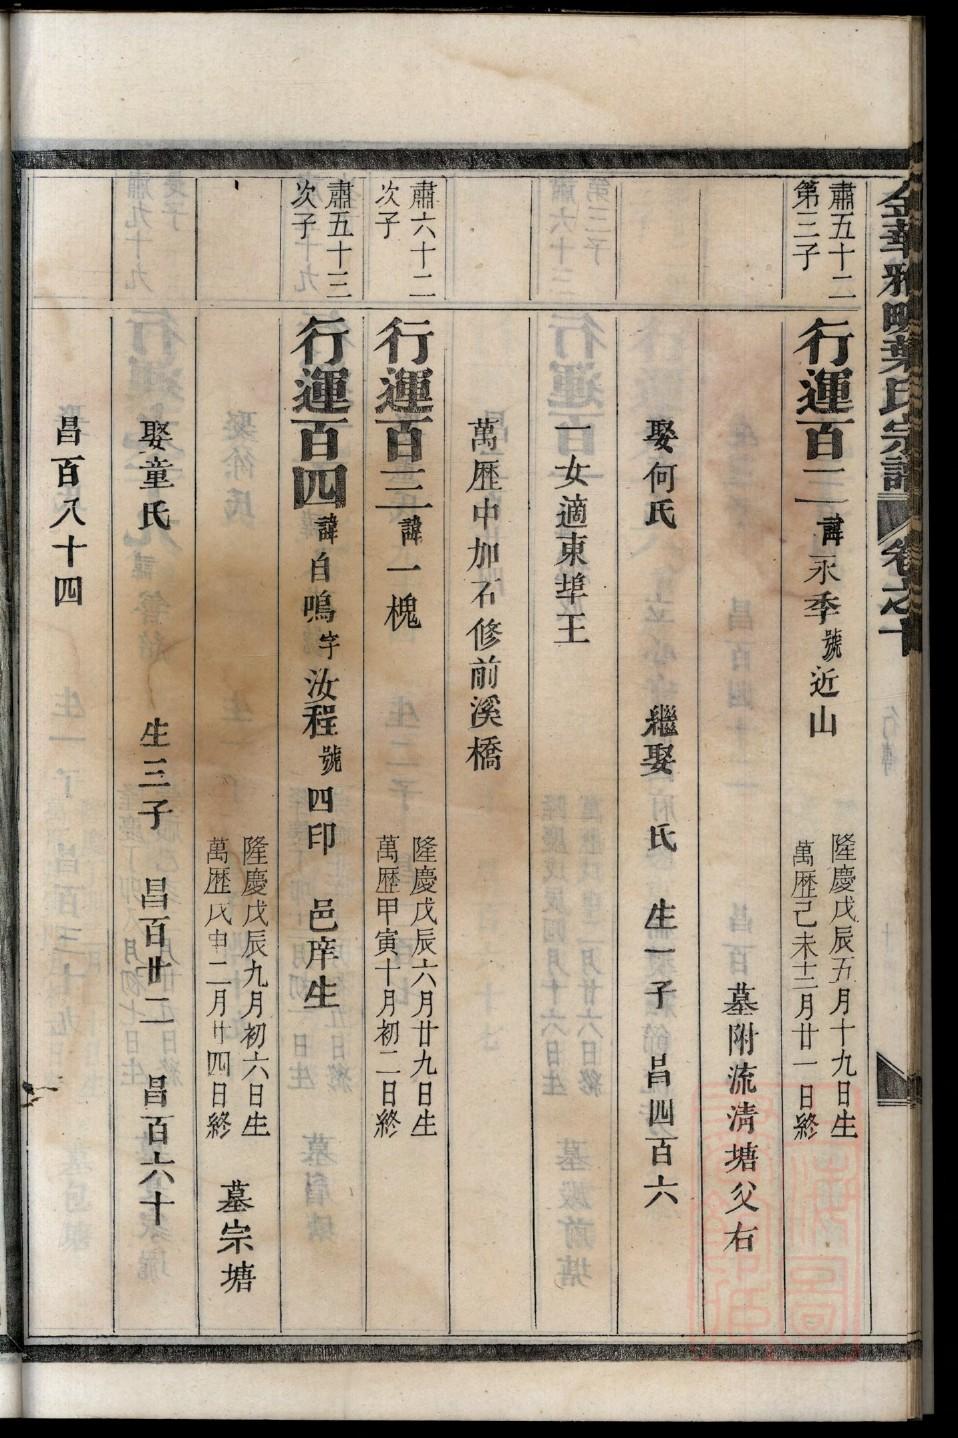 金華雅畈葉氏宗譜 卷之十
肅五十二
第三子
行運百二 諱永季 號近山
隆慶戊辰五月十九日生
萬歷己未十二月廿一日終
墓附流清塘父右
娶何氏 繼娶 氏 生一子 昌四百六
一女適東埠王
萬歷中加石修前溪橋
肅六十二
次子
行運百三 諱一槐
隆慶戊辰六月廿九日生
萬歷甲寅十月初二日終
肅五十三
次子
行運百四 諱自鳴 字汝程 號四印 邑庠生
隆慶戊辰九月初六日生
萬歷戊申二月廿四日終
墓宗塘
娶童氏 生三子 昌百卅二 昌百六十
昌百八十四